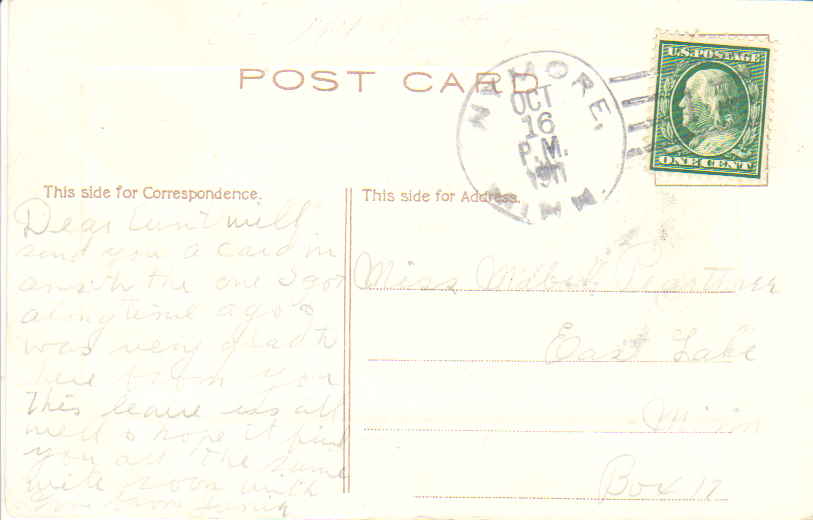 POST CARD
NYMORE,
OCT
16
P.M.
1911
MINN.
U.S. POSTAGE
ONE CENT
This side for Correspondence.
Dear will
send you a card in
the one I got
alongtime ago
was very glad to
here from you
This leave us all
well & hope it find
you all the same
write soon with
love from
This side for Address.
Miss
East Lake
Minn
Box 17